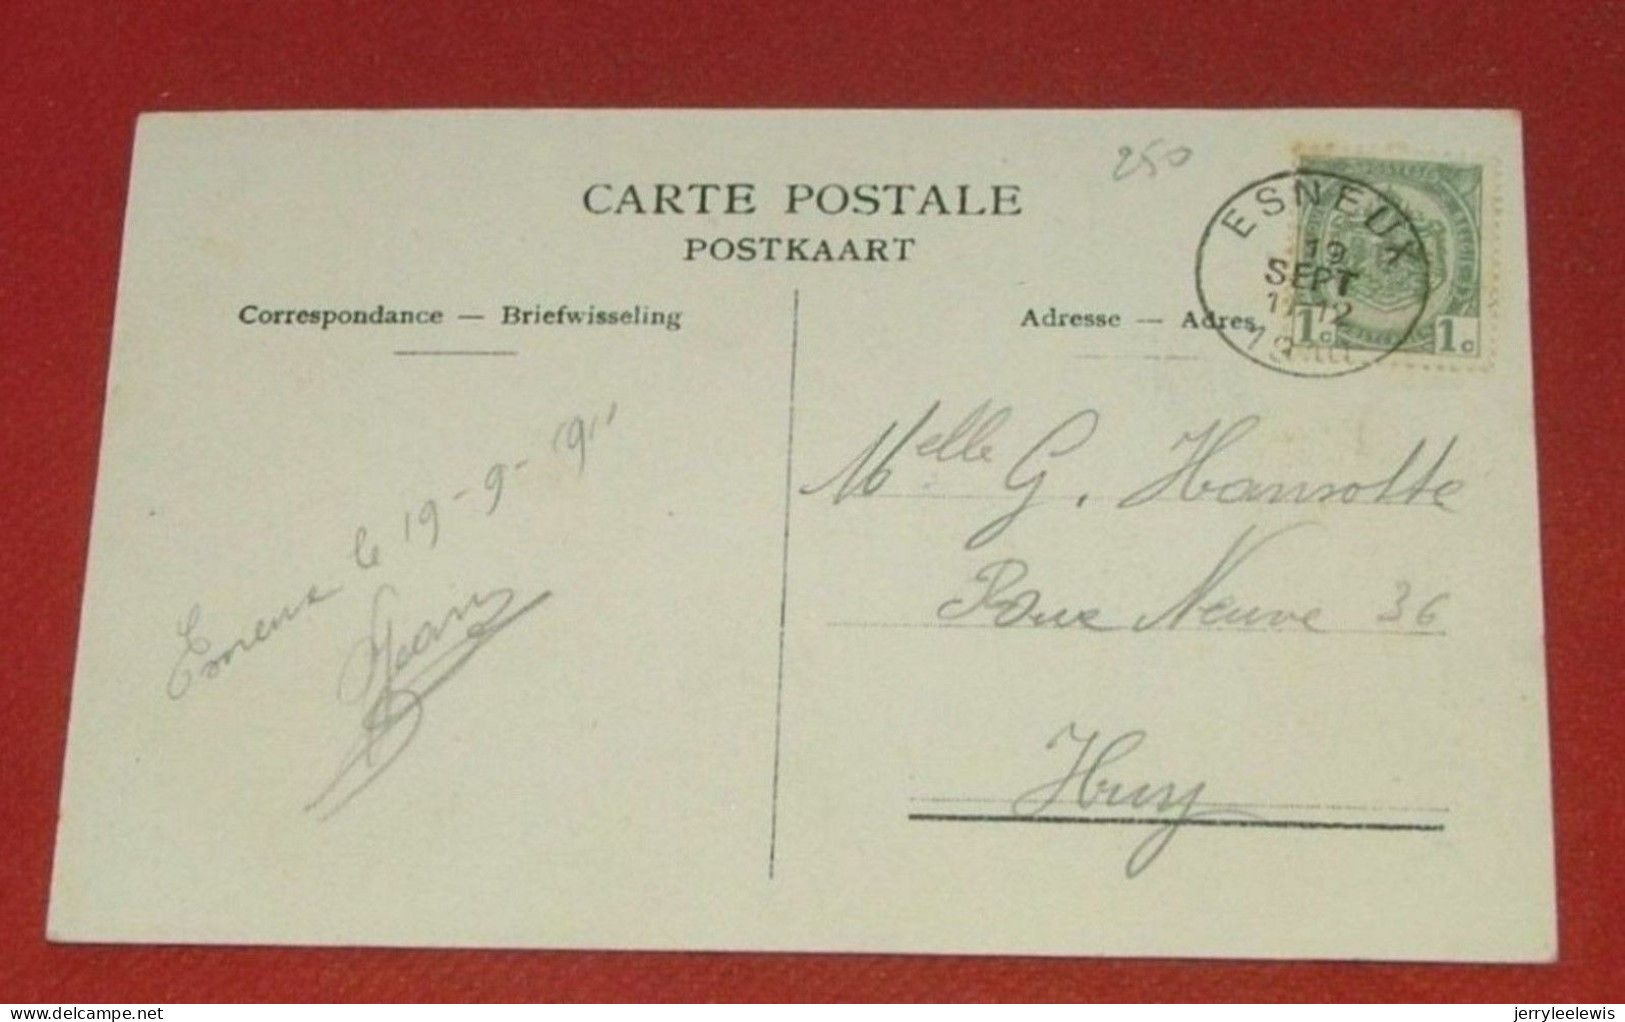 250
CARTE POSTALE
POSTKAART
Correspondance — Briefwisseling
Adresse — Adres
ESNEUX
19
SEPT
11-12
1911
1c 1c
Esneux le 19-9-1911
Jean
Melle G. Hansotte
Rue Neuve 36
Huy
jerryleelewis